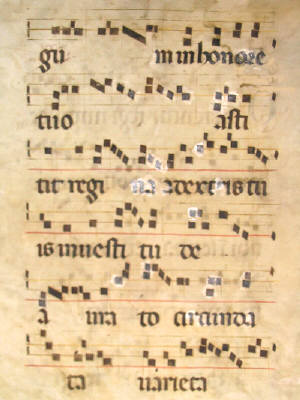 gu m in honore
tuo asti
tit regi na adextris tu
is inuesti tu de
a ura to circunda
ta uarieta